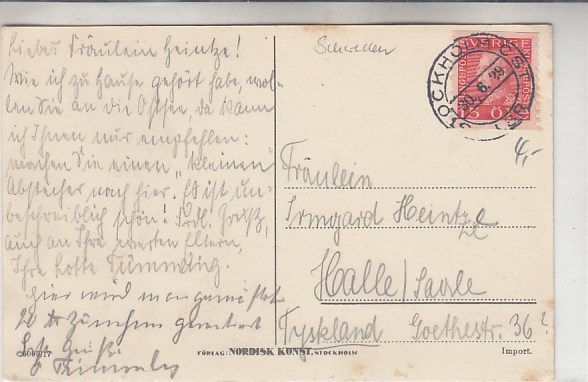 Liebes Fräulein Heintze!
Wie ich zu Hause gehört habe, wol-
len Sie an die Ostsee, da kann
ich Ihnen nur empfehlen:
machen Sie einen „kleinen"
Abstecher nach hier. Es ist un-
beschreiblich schön! Frdl. Grüße,
auch an Ihre werten Eltern,
Ihre Lotte Tümmling.
Hier wird man
20
Tümmler
Schweden
SVERIGE
STOCKHOLM
30.6.28
4,-
Fräulein
Irmgard Heintze
Halle/Saale
Tyskland Goethestr. 36
FÖRLAG: NORDISK KONST, STOCKHOLM
Import.